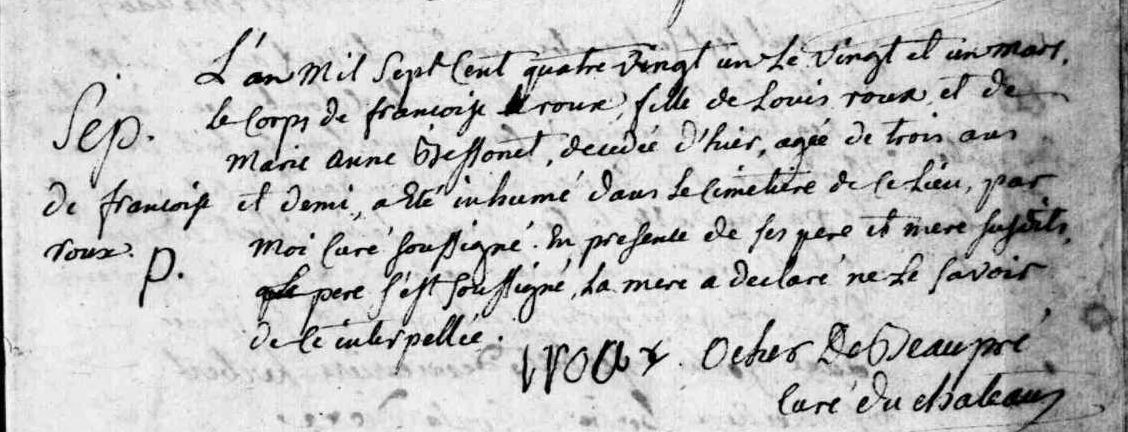 L'an mil Sept Cent quatre vingt un Le vingt et un mars,
le Corps de francoise roux, fille de Louis roux, et de
Sep.
Marie anne Bessonet, decedée d'hier, agée de trois ans
de francoise
et demi, a Eté inhumé dans Le Cimetiere de Ce Lieu, par
roux. p.
moi Curé soussigné. En presence de ses pere et mere susdits,
pere s'est soussigné, La mere a declaré ne Le savoir
de Ce interpellée.
roux. Ocher De Beaupré
Curé du chateau